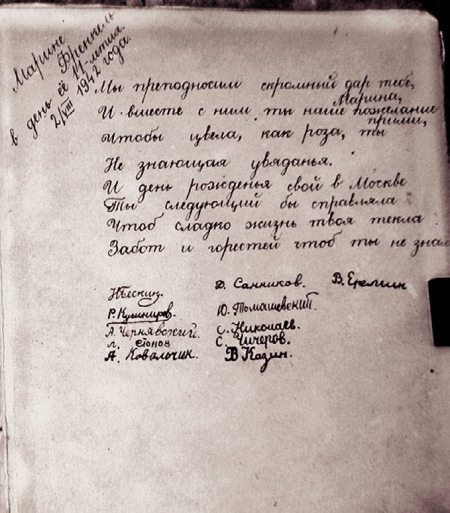 Марине Френкель
в день её 11-летия.
2/VIII 1942 года.
Мы преподносим скромный дар тебе,
Марина,
И вместе с ним ты наше пожелание
прими,
Чтобы цвела, как роза, ты
Не знающая увяданья.
И день рожденья свой в Москве
Ты следующий бы справляла
Чтоб сладко жизнь твоя текла
Забот и горестей чтоб ты не знал
Д. Санников. В. Еремин
Р. Кушниров. Ю. Томашевский.
А. Чернявский. С. Николаев.
Л. С. Чичеров.
А. Ковальчик. В Казин.